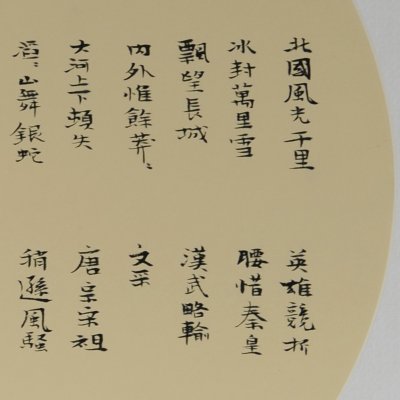 北國風光千里
冰封萬里雪
飄望長城
内外惟餘莽〻
大河上下頓失
滔〻山舞銀蛇
英雄競折
腰惜秦皇
漢武略輸
文采
唐宗宋祖
稍遜風騷